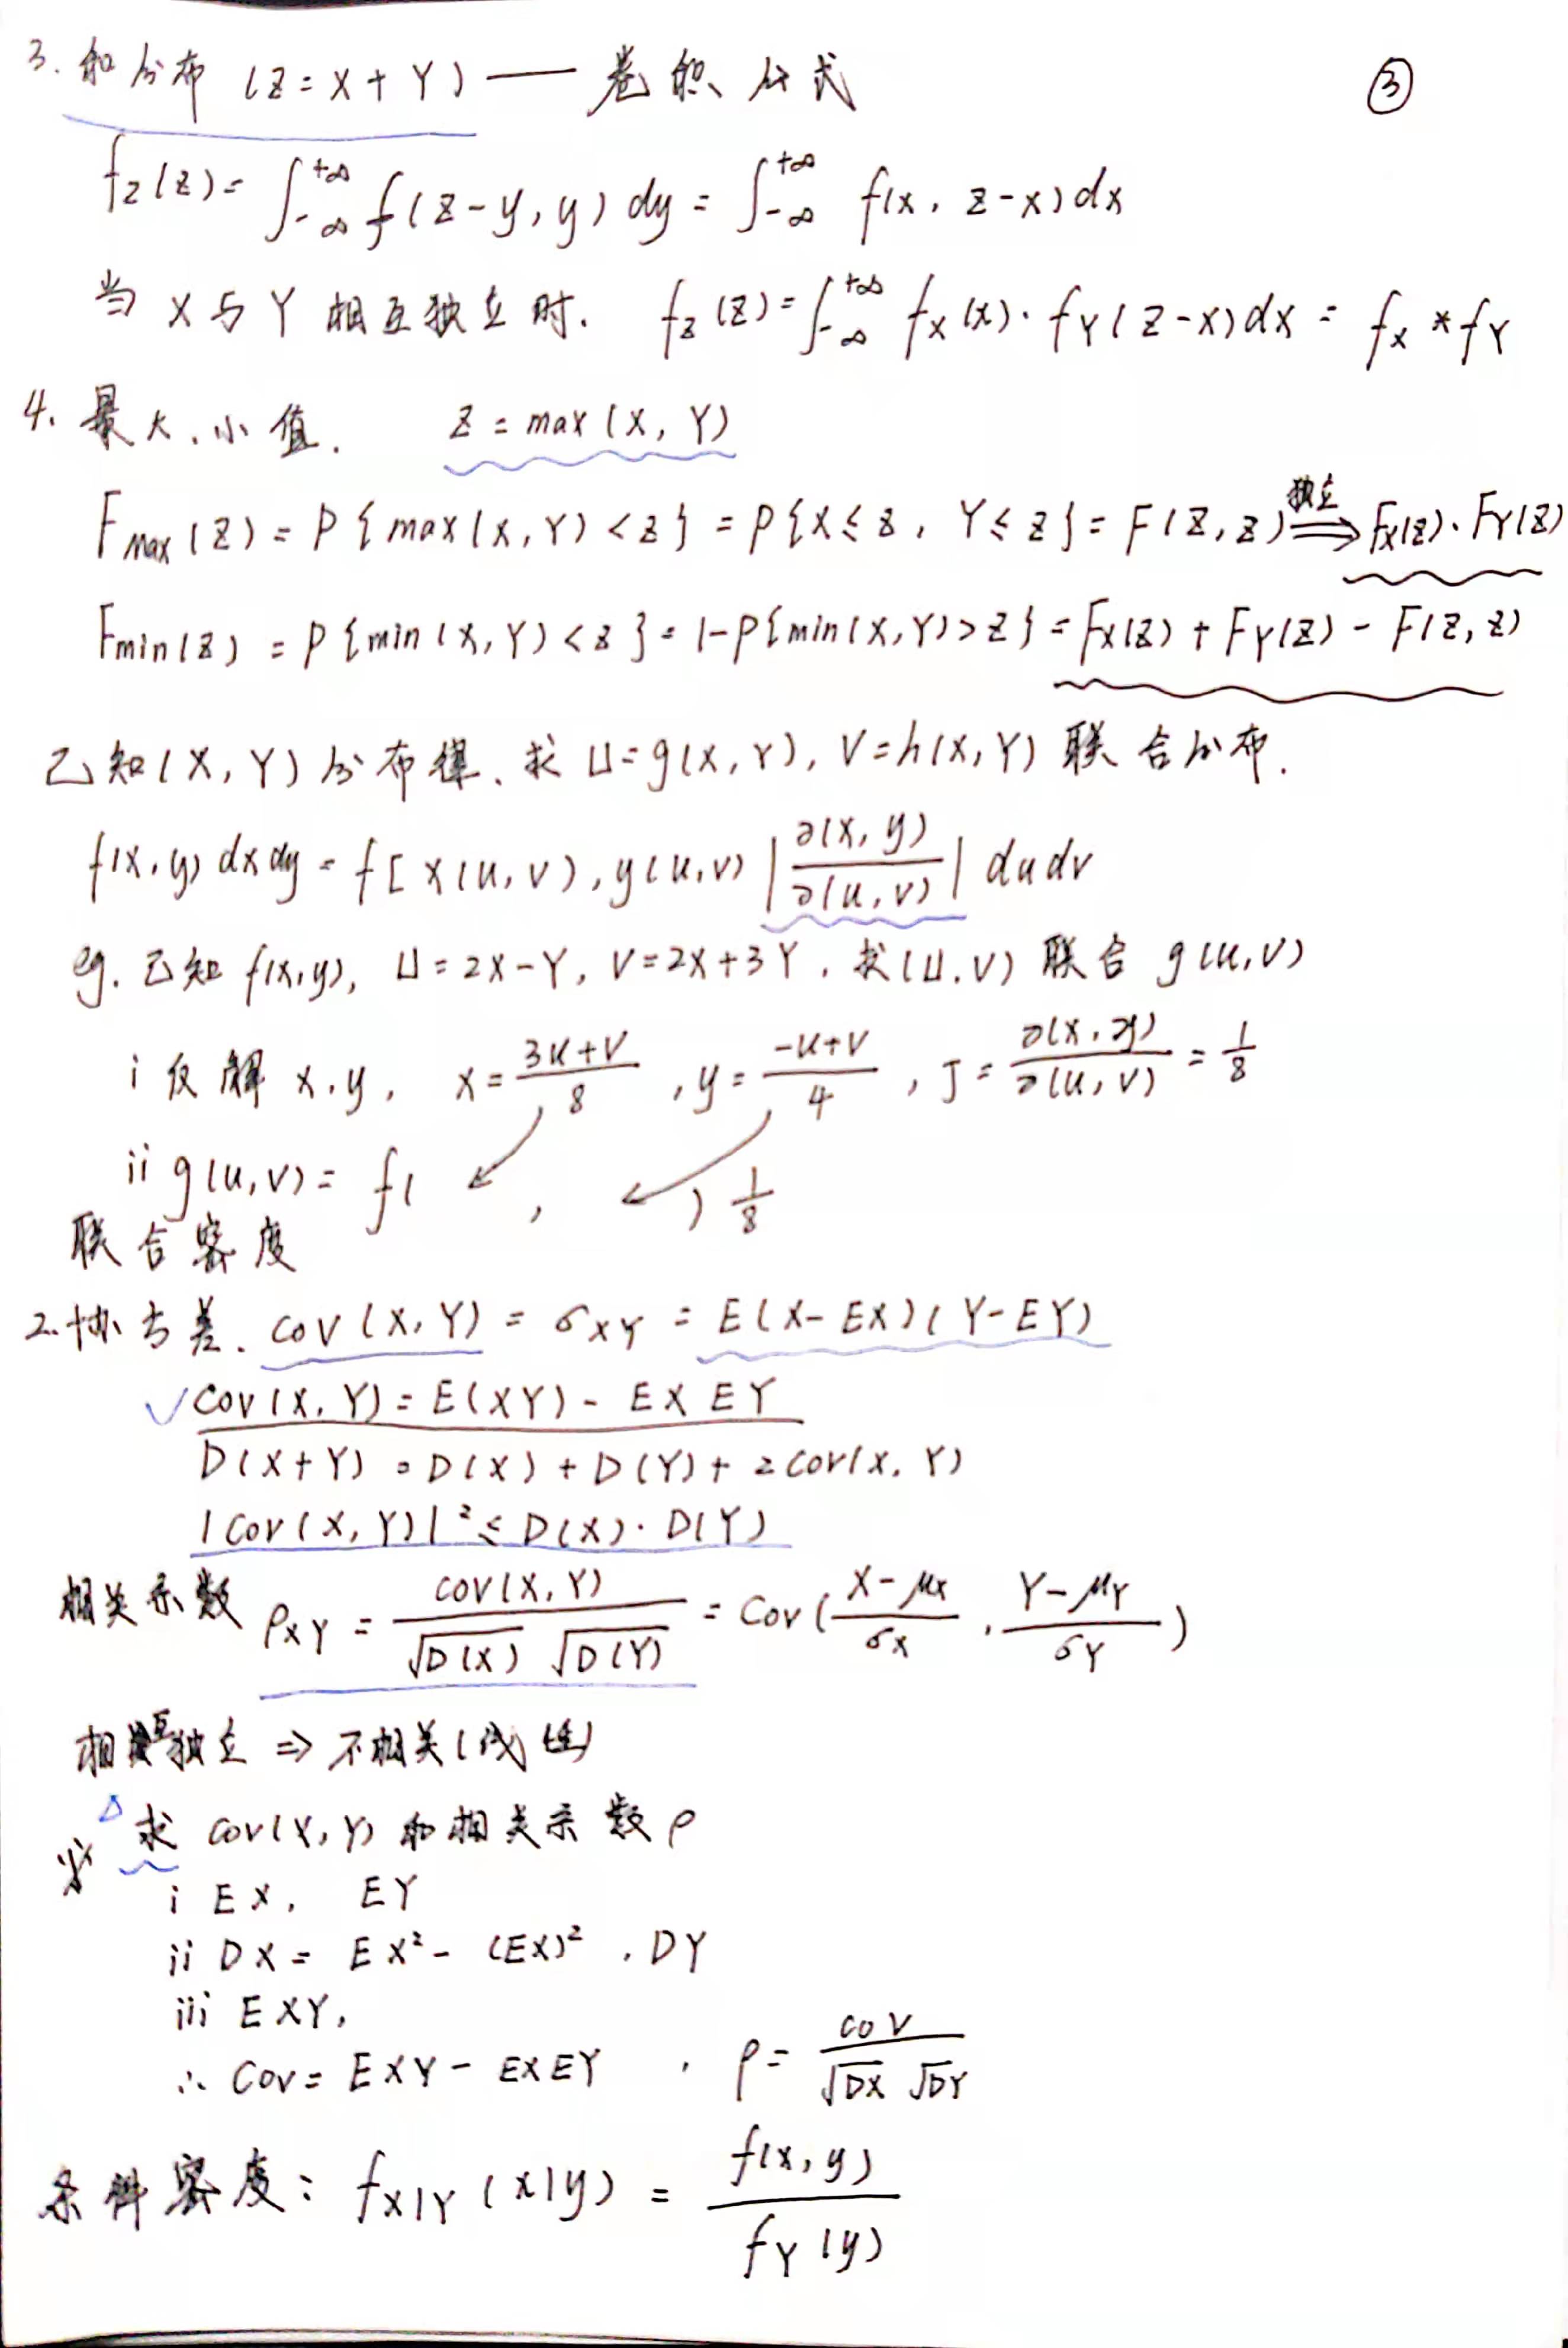 3. 和分布 (Z=X+Y) —— 卷积公式 ③
f_Z(z) = ∫_{-∞}^{+∞} f(z-y, y) dy = ∫_{-∞}^{+∞} f(x, z-x) dx
当 X 与 Y 相互独立时. f_Z(z) = ∫_{-∞}^{+∞} f_X(x)·f_Y(z-x) dx = f_X * f_Y
4. 最大、小值. Z = max(X, Y)
F_max(z) = P{max(X, Y) < z} = P{X ≤ z, Y ≤ z} = F(z, z) ⟹(独立) F_X(z)·F_Y(z)
F_min(z) = P{min(X, Y) < z} = 1-P{min(X, Y) > z} = F_X(z) + F_Y(z) - F(z, z)
已知(X, Y)分布律、求 U=g(X, Y), V=h(X, Y) 联合分布.
f(x, y) dx dy = f[x(u, v), y(u, v) |∂(x, y)/∂(u, v)| du dv
eg. 已知 f(x, y), U=2X-Y, V=2X+3Y, 求(U, V) 联合 g(u, v)
i 反解 x, y, x = (3u+v)/8, y = (-u+v)/4, J = ∂(x, y)/∂(u, v) = 1/8
ii g(u, v) = f( , ) 1/8
联合密度
2. 协方差. Cov(X, Y) = σ_XY = E(X-EX)(Y-EY)
√ Cov(X, Y) = E(XY) - EX EY
D(X+Y) = D(X) + D(Y) + 2Cov(X, Y)
|Cov(X, Y)|² ≤ D(X)·D(Y)
相关系数 ρ_XY = Cov(X, Y)/(√D(X) √D(Y)) = Cov((X-μ_X)/σ_X, (Y-μ_Y)/σ_Y)
相互独立 ⇒ 不相关(线性)
△ 求 Cov(X, Y) 和相关系数 ρ
i EX, EY
ii DX = EX² - (EX)², DY
iii EXY,
∴ Cov = EXY - EXEY, ρ = Cov/(√DX √DY)
条件密度: f_{X|Y}(x|y) = f(x, y)/f_Y(y)